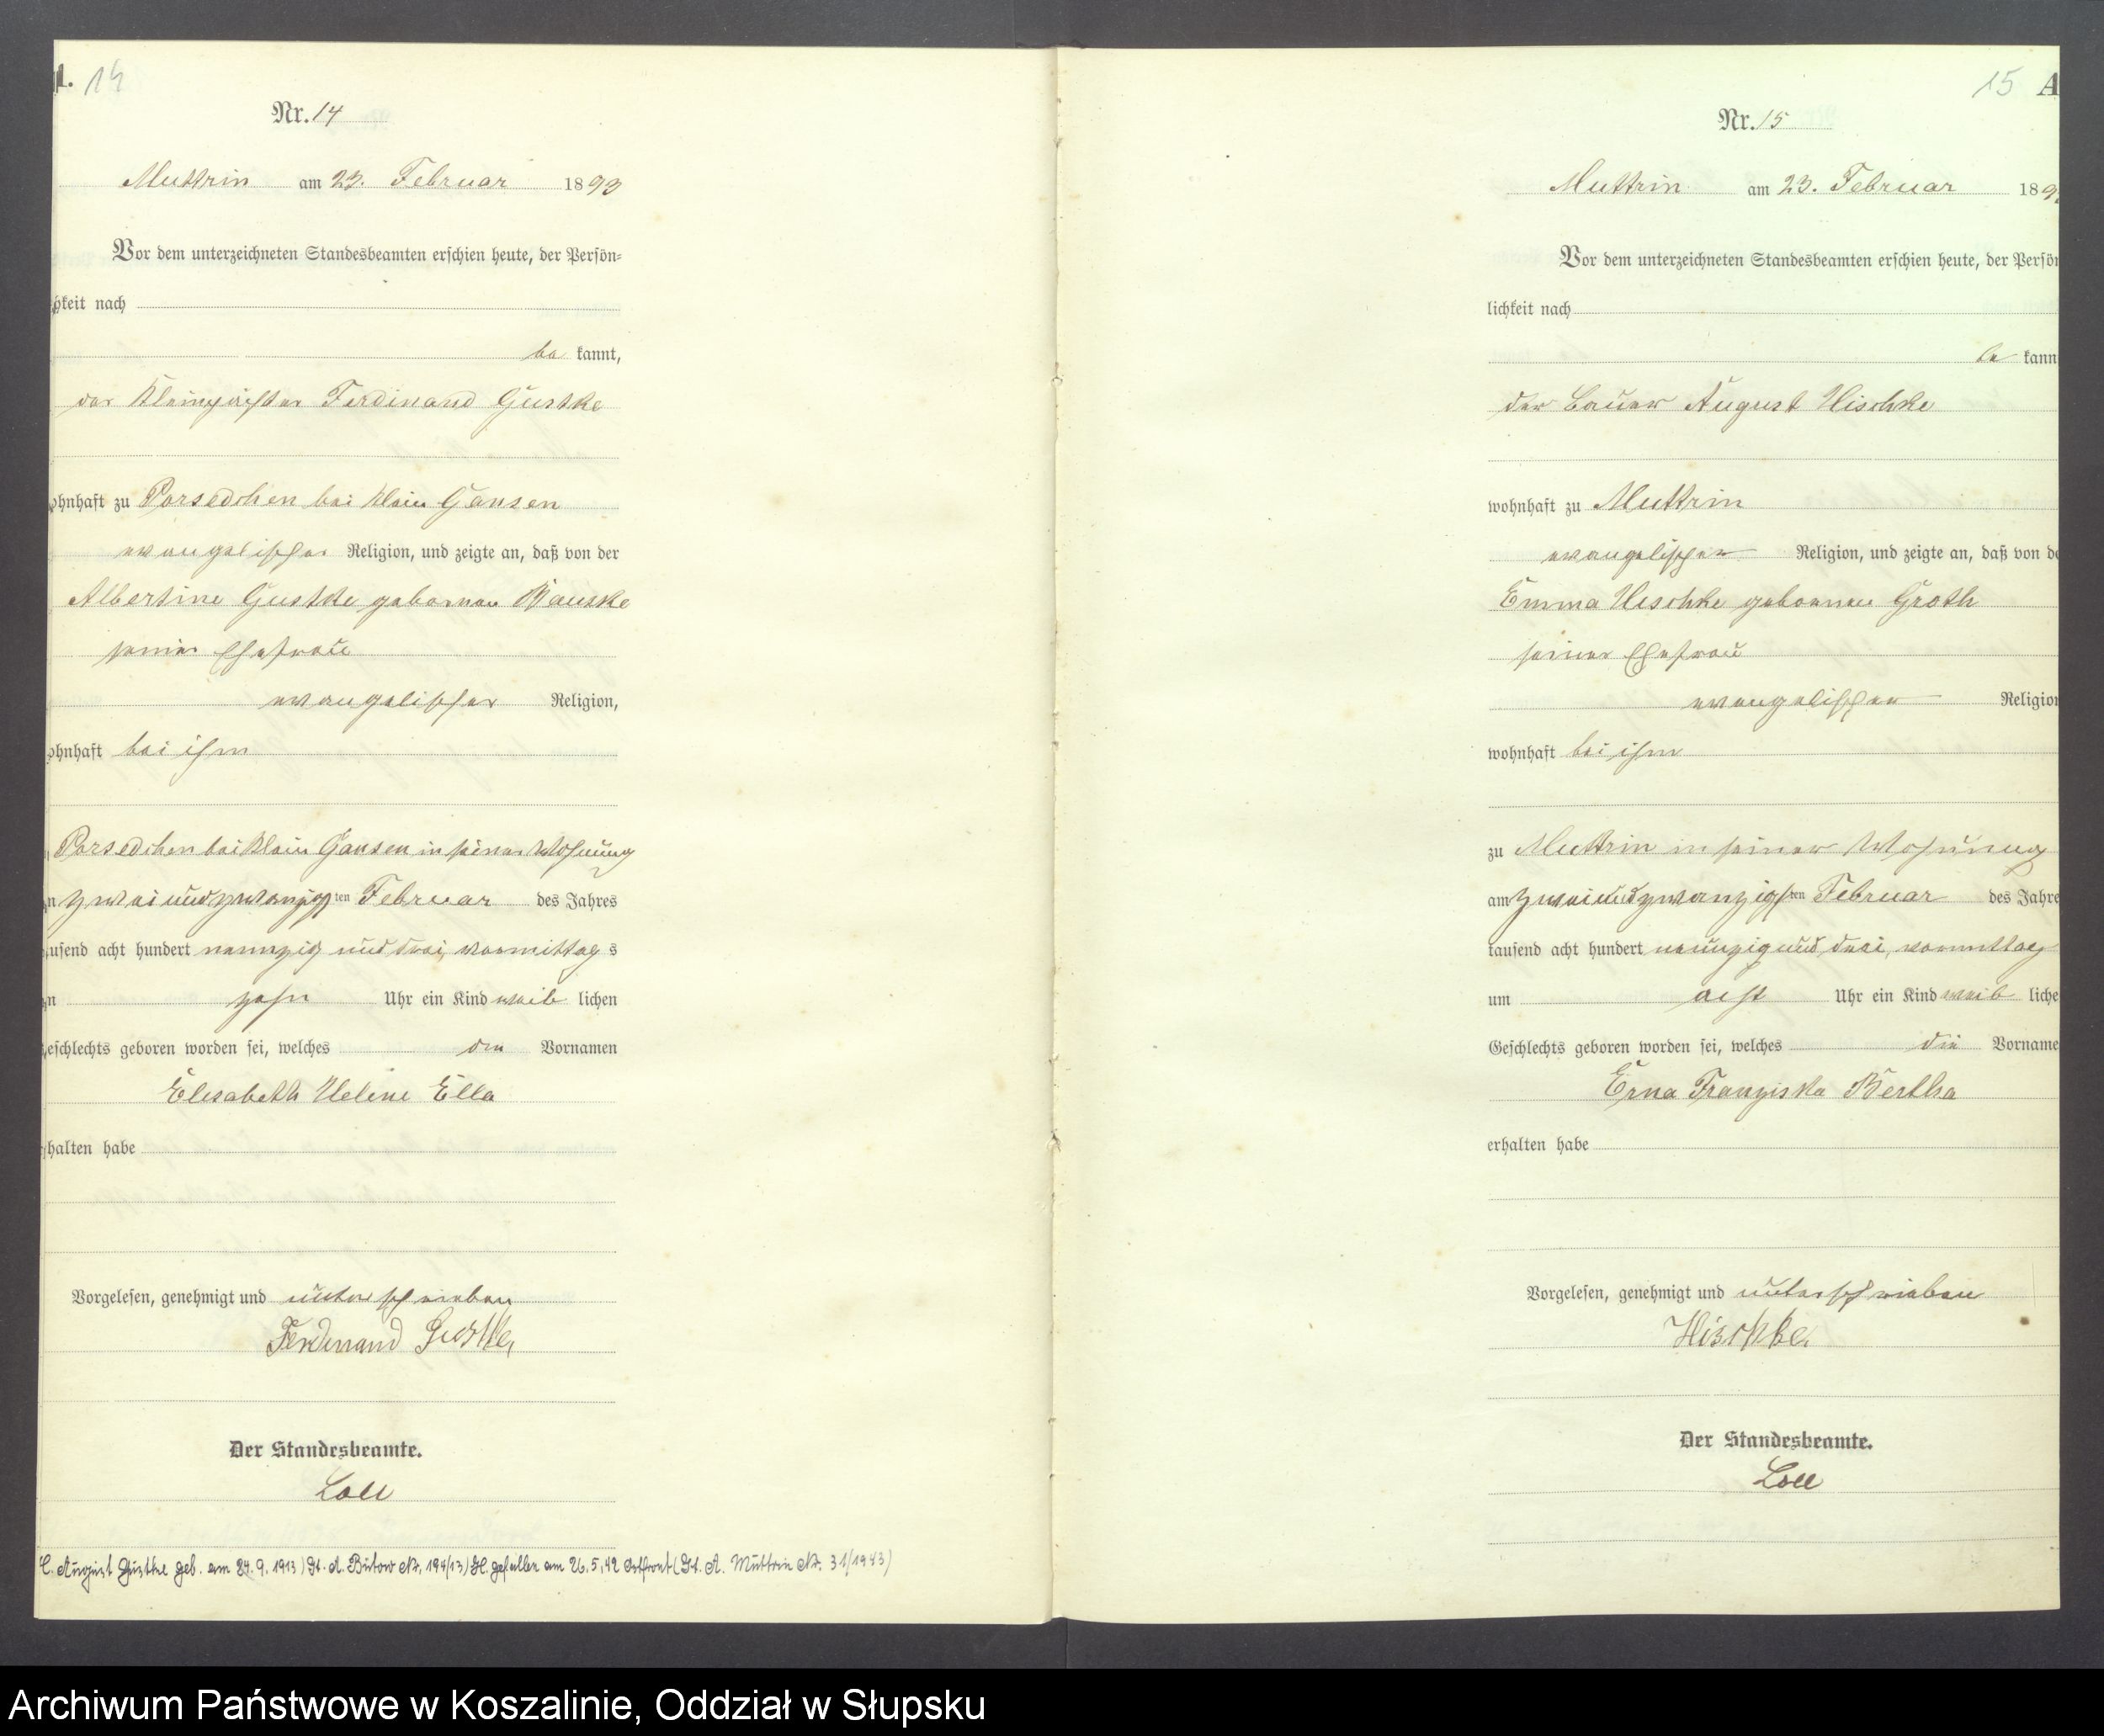 1. 14
Nr. 14
Muttrin am 23. Februar 1893
Vor dem unterzeichneten Standesbeamten erschien heute, der Persön-
hkeit nach
be kannt,
der Kleinpächter Ferdinand Gustke
ohnhaft zu Porsedchen bei Klein Gansen
evangelischer Religion, und zeigte an, daß von der
Albertine Gustke geborenen Bauske
seiner Ehefrau
evangelischer Religion,
ohnhaft bei ihm
Porsedchen bei Klein Gansen in seiner Wohnung
n zwei und zwanzigsten Februar des Jahres
usend acht hundert neunzig und drei, vormittag s
zehn Uhr ein Kind weib lichen
eschlechts geboren worden sei, welches die Vornamen
Elisabeth Helene Ella
halten habe
Vorgelesen, genehmigt und unterschrieben
Ferdinand Gustke,
Der Standesbeamte.
Loll
August Gustke geb. am 24. 9. 1913) St. A. Bütow Nr. 194/13) gefallen am 26. 5. 42 Ostfront (St. A. Muttrin Nr. 31/1943)
15 A
Nr. 15
Muttrin am 23. Februar 189
Vor dem unterzeichneten Standesbeamten erschien heute, der Persön
lichkeit nach
be kann
der Bauer August Hischke
wohnhaft zu Muttrin
evangelischer Religion, und zeigte an, daß von de
Emma Hischke geborenen Groth
seiner Ehefrau
evangelischer Religion
wohnhaft bei ihm
zu Muttrin in seiner Wohnung
am zwei und zwanzigsten Februar des Jahre
tausend acht hundert neunzig und drei, vormittag
um acht Uhr ein Kind weib liche
Geschlechts geboren worden sei, welches die Vorname
Erna Franziska Bertha
erhalten habe
Vorgelesen, genehmigt und unterschrieben
Hischke.
Der Standesbeamte.
Loll
Archiwum Państwowe w Koszalinie, Oddział w Słupsku